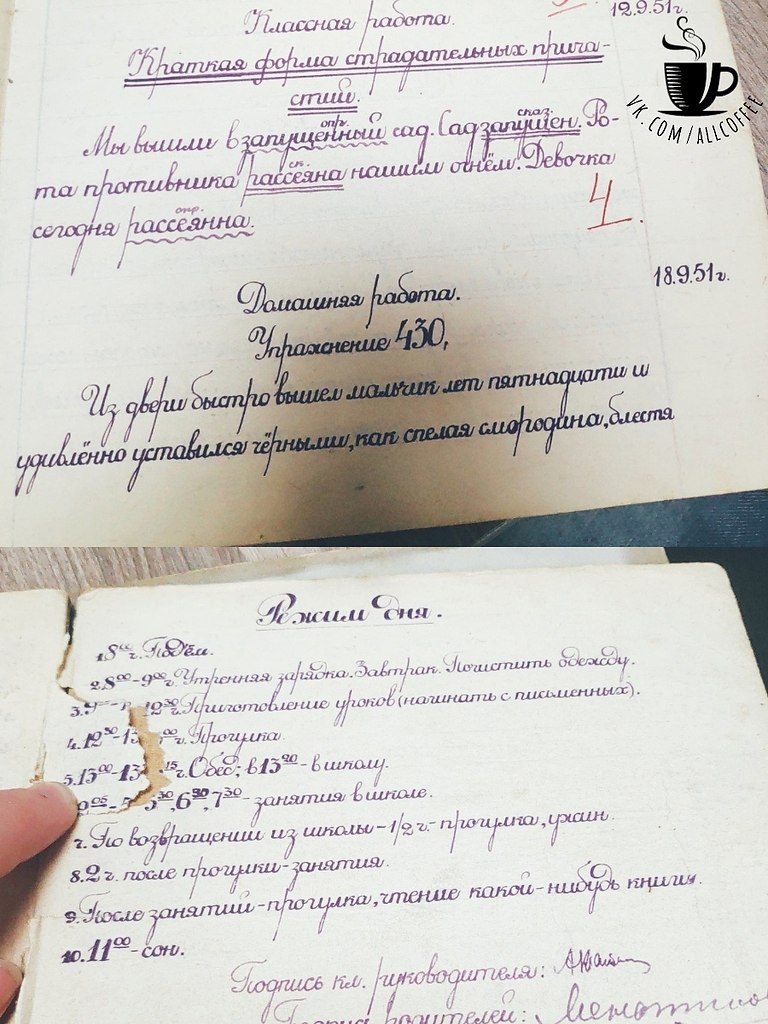 12.9.51г.
Классная работа.
Краткая форма страдательных прича-
стий.
опр. сказ.
Мы вышли в запущенный сад. Сад запущен. Ро-
ск.
та противника рассеяна нашим огнём. Девочка
опр.
сегодня рассеянна.
4
VK.COM/ALLCOFFEE
18.9.51г.
Домашняя работа.
Упражнение 430,
Из двери быстро вышел мальчик лет пятнадцати и
удивлённо уставился чёрными, как спелая смородина, блестя
Режим дня.
1. 8⁰⁰ ч. Подъём.
2. 8⁰⁰-9⁰⁰ч. Утренняя зарядка. Завтрак. Почистить одежду.
3. 12³⁰ч. Приготовление уроков (начинать с письменных).
4. 12³⁰-13⁰⁰ч. Прогулка.
5. 13⁰⁰-13¹⁵ч. Обед; в 13²⁰-в школу.
6³⁰, 7³⁰- занятия в школе.
ч. По возвращении из школы-1/2 ч.- прогулка, ужин.
8. 2 ч. после прогулки-занятия.
9. После занятий-прогулка, чтение какой-нибудь книги.
10. 11⁰⁰-сон.
Подпись кл. руководителя:
родителей: